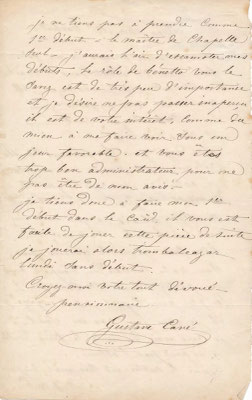 je ne tiens pas à prendre comme
1er début - le maître de Chapelle
seul - j'aurais l'air d'escamoter mes
débuts, le rôle de vous le
sang est de très peu d'importance
et je désire ne pas passer inaperçu
il est de votre intérêt, comme du
mien à me faire voir sous un
jour favorable - et vous êtes
trop bon administrateur pour ne
pas être de mon avis -
je tiens donc à faire mon 1er
début dans le Caïd. il vous est
facile de jouer cette pièce de suite
je jouerai alors
lundi sans début.
Croyez-moi votre tout dévoué
pensionnaire
Gustave